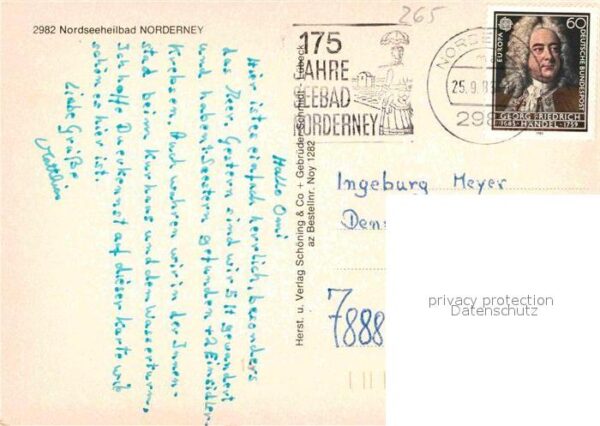 2982 Nordseeheilbad NORDERNEY
Hallo Omi
Hier ist es einfach herrlich, besonders
das Meer. Gestern sind wir 5 H gewandert
und haben Seestern gefunden + 2 Einsiedler-
Krebsen. Auch wahren wir in der Innen-
stad beim Kurhaus und dem Wasserturm.
Ich hoffe Du erkennst auf dieser Karte wie
schön es hier ist.
Liebe Grüße
Matthias
Herst. u. Verlag Schöning & Co + Gebrüder Schmidt · Lübeck
az Bestellnr. Noy 1282
265
175
JAHRE
SEEBAD
NORDERNEY
25.9.8
298
EUROPA
60
DEUTSCHE BUNDESPOST
GEORG FRIEDRICH
1685 HÄNDEL 1759
Ingeburg Meyer
7888
privacy protection
Datenschutz